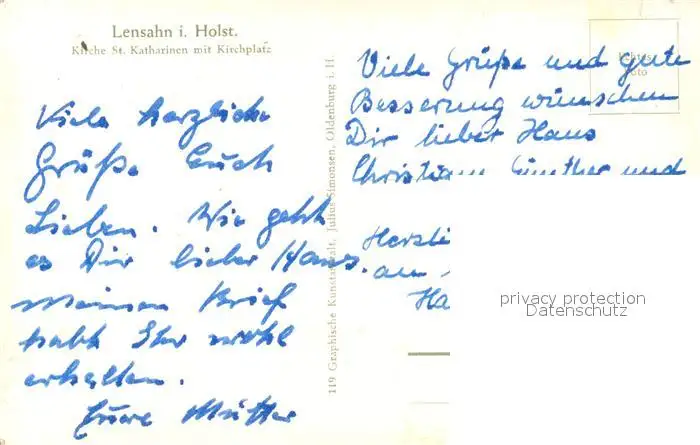 Lensahn i. Holst.
Kirche St. Katharinen mit Kirchplatz
Viele herzliche
Grüße Euch
Lieben. Wie geht
es Dir lieber Hans.
Meinen Brief
habt Ihr wohl
erhalten.
Eure Mutter
119 Graphische Kunstanstalt, Julius Simonsen, Oldenburg i. H.
Echtes
Foto
Viele Grüße und gute
Besserung wünschen
Dir lieber Hans
Christiann Günther und
Herzli
an
Ha
privacy protection
Datenschutz